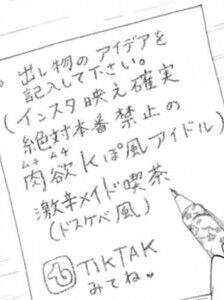 出し物のアイデアを
記入して下さい。
(インスタ映え確実
絶対本番禁止の
ムチ ムチ
肉欲kぽ風アイドル)
激辛メイド喫茶
(ドスケベ風)
TiKTAK
みてね♥